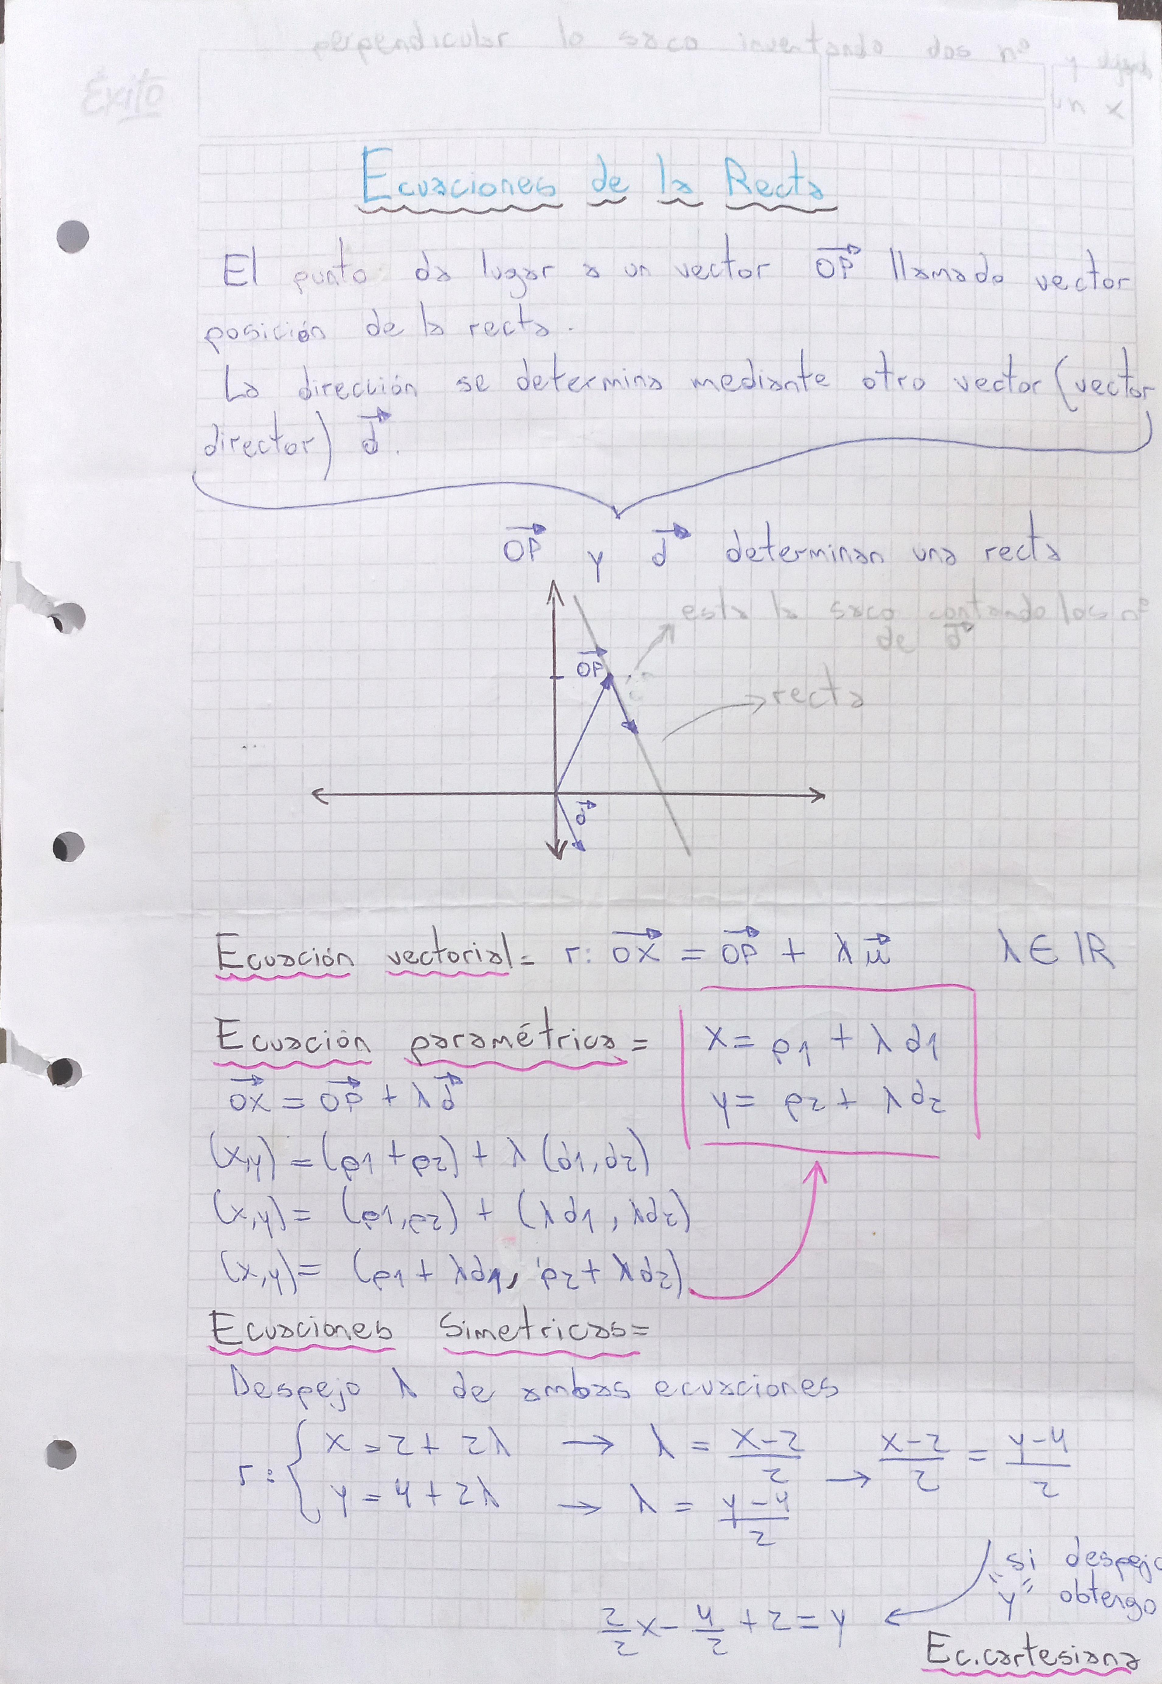 perpendicular lo saco inventando dos nº y dejando
un x
Éxito
Ecuaciones de la Recta
El punto da lugar a un vector OP llamado vector
posición de la recta.
La dirección se determina mediante otro vector (vector
director) d.
OP y d determinan una recta
esta la saco contando los nº
de d
OP
recta
d
Ecuación vectorial= r: OX = OP + λu λ ∈ IR
Ecuación paramétrica =
x = p1 + λd1
y = p2 + λd2
OX = OP + λd
(x,y) = (p1 + p2) + λ (d1, d2)
(x,y) = (p1, p2) + (λd1, λd2)
(x,y) = (p1 + λd1, p2 + λd2)
Ecuaciones Simetricas=
Despejo λ de ambas ecuaciones
r: { x = 2 + 2λ → λ = (x-2)/2 → (x-2)/2 = (y-4)/2
y = 4 + 2λ → λ = (y-4)/2
si despejo
"y" obtengo
2/2 x - 4/2 + 2 = y
Ec. cartesiana